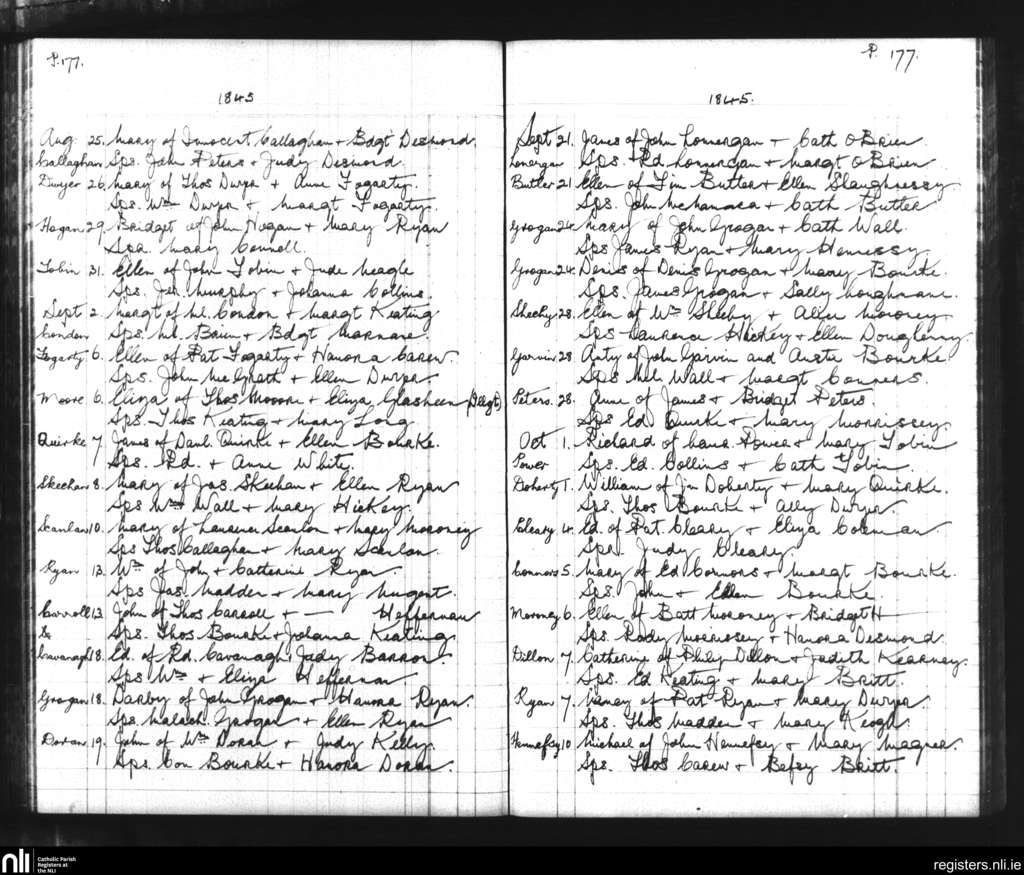 P. 177.
1845
Aug 25. Mary of Innocent Callaghan + Bdgt Desmond.
Callaghan Sps. John Peters + Judy Desmond.
Dwyer 26. Mary of Thos Dwyer + Anne Fogarty.
Sps. Wm Dwyer + Margt Fogarty.
Hogan 29. Bridget of John Hogan + Mary Ryan
Spr Mary Connoll.
Tobin 31. Ellen of John Tobin + Jude Meagle
Sps. Jer. Murphy + Johanna Collins.
Sept 2. Margt of Ml. Condon + Margt Keating
Condon Sps. Ml. Brien + Bdgt Marnane.
Fogarty 6. Ellen of Pat Fogarty + Hanora Carew.
Sps. John McGrath + Ellen Dwyer
Moore 6. Eliza of Thos Mooore + Eliza Glasheen (Illegt)
Sps. Thos Keating + Mary Long
Quirke 7. James of Danl. Quirke + Ellen Bourke.
Sps. Rd. + Anne White.
Skeehan 8. Mary of Jas. Skeehan + Ellen Ryan
Sps Wm Wall + Mary Hickey.
Scanlan 10. Mary of Laurence Scanlon + Mary Mooney
Sps Thos Callaghan + Mary Scanlon.
Ryan 13. Wm of John + Catherine Ryan.
Sps Jas. Madden + Mary Nugent.
Carroll 13 John of Thos Carroll + — Heffernan
& Sps. Thos Bourke + Johanna Keating
Cavanagh 18. Ed. of Rd. Cavanagh, Judy Barron.
Sps Wm + Eliza Heffernan
Grogan 18. Darby of John Grogan + Hanora Ryan.
Sps. Malach. Grogan + Ellen Ryan
Doran 19. John of Wm Doran + Judy Kelly.
Sps. Con Bourke + Hanora Doran.
P. 177.
1845.
Sept 21. James of John Lonergan + Cath O'Brien
Lonergan Sps. Rd. Lonergan + Margt O'Brien
Butler 21 Ellen of Tim Butler + Ellen Slaughnessy
Sps. John McNamara + Cath Butler
Grogan 24. Mary of John Grogan + Cath Wall.
Sps James Ryan + Mary Hennessy
Grogan 24. Denis of Denis Grogan + Mary Bourke.
Sps. James Grogan + Sally Loughnane.
Sheehy 28. Ellen of Wm Sheehy + Alice Mooney
Sps Laurence Hickey + Ellen Dougherry
Garvin 28 Anty of John Garvin and Austa Bourke
Sps Mch. Wall + Margt Connors.
Peters. 28. Anne of James + Bridget Peters.
Sps Ed. Quirke + Mary Morrissey.
Oct 1. Richard of Laur. Power + Mary Tobin
Power Sps. Ed. Collins + Cath Tobin.
Doherty 1. William of Jn Doherty + Mary Quirke.
Sps. Thos Bourke + Ally Dwyer
Cleary 4. Ed. of Pat. Cleary + Eliza Colman
Spr. Judy Cleary.
Connors 5. Mary of Ed Connors + Margt Bourke.
Sps. John + Ellen Bourke.
Mooney 6. Ellen of Batt Mooney + Bridget H
Sps. Rody Morrosey + Hanora Desmond.
Dillon 7. Catherine of Philip Dillon + Judith Kearney.
Sps. Ed Keating + Mary Britt.
Ryan 7. Nancy of Pat Ryan + Mary Dwyer.
Sps. Thos Madden + Mary Keogh.
Hennessy 10 Michael of John Hennessy + Mary Magner.
Sps. Thos Carew + Betsy Britt.
nli Catholic Parish
Registers at
the NLI
registers.nli.ie